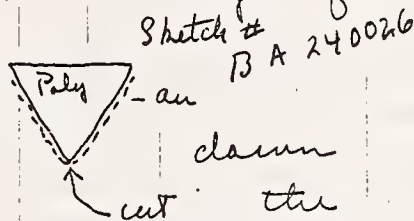 Sketch #
BA 240026
Poly
down
cut the